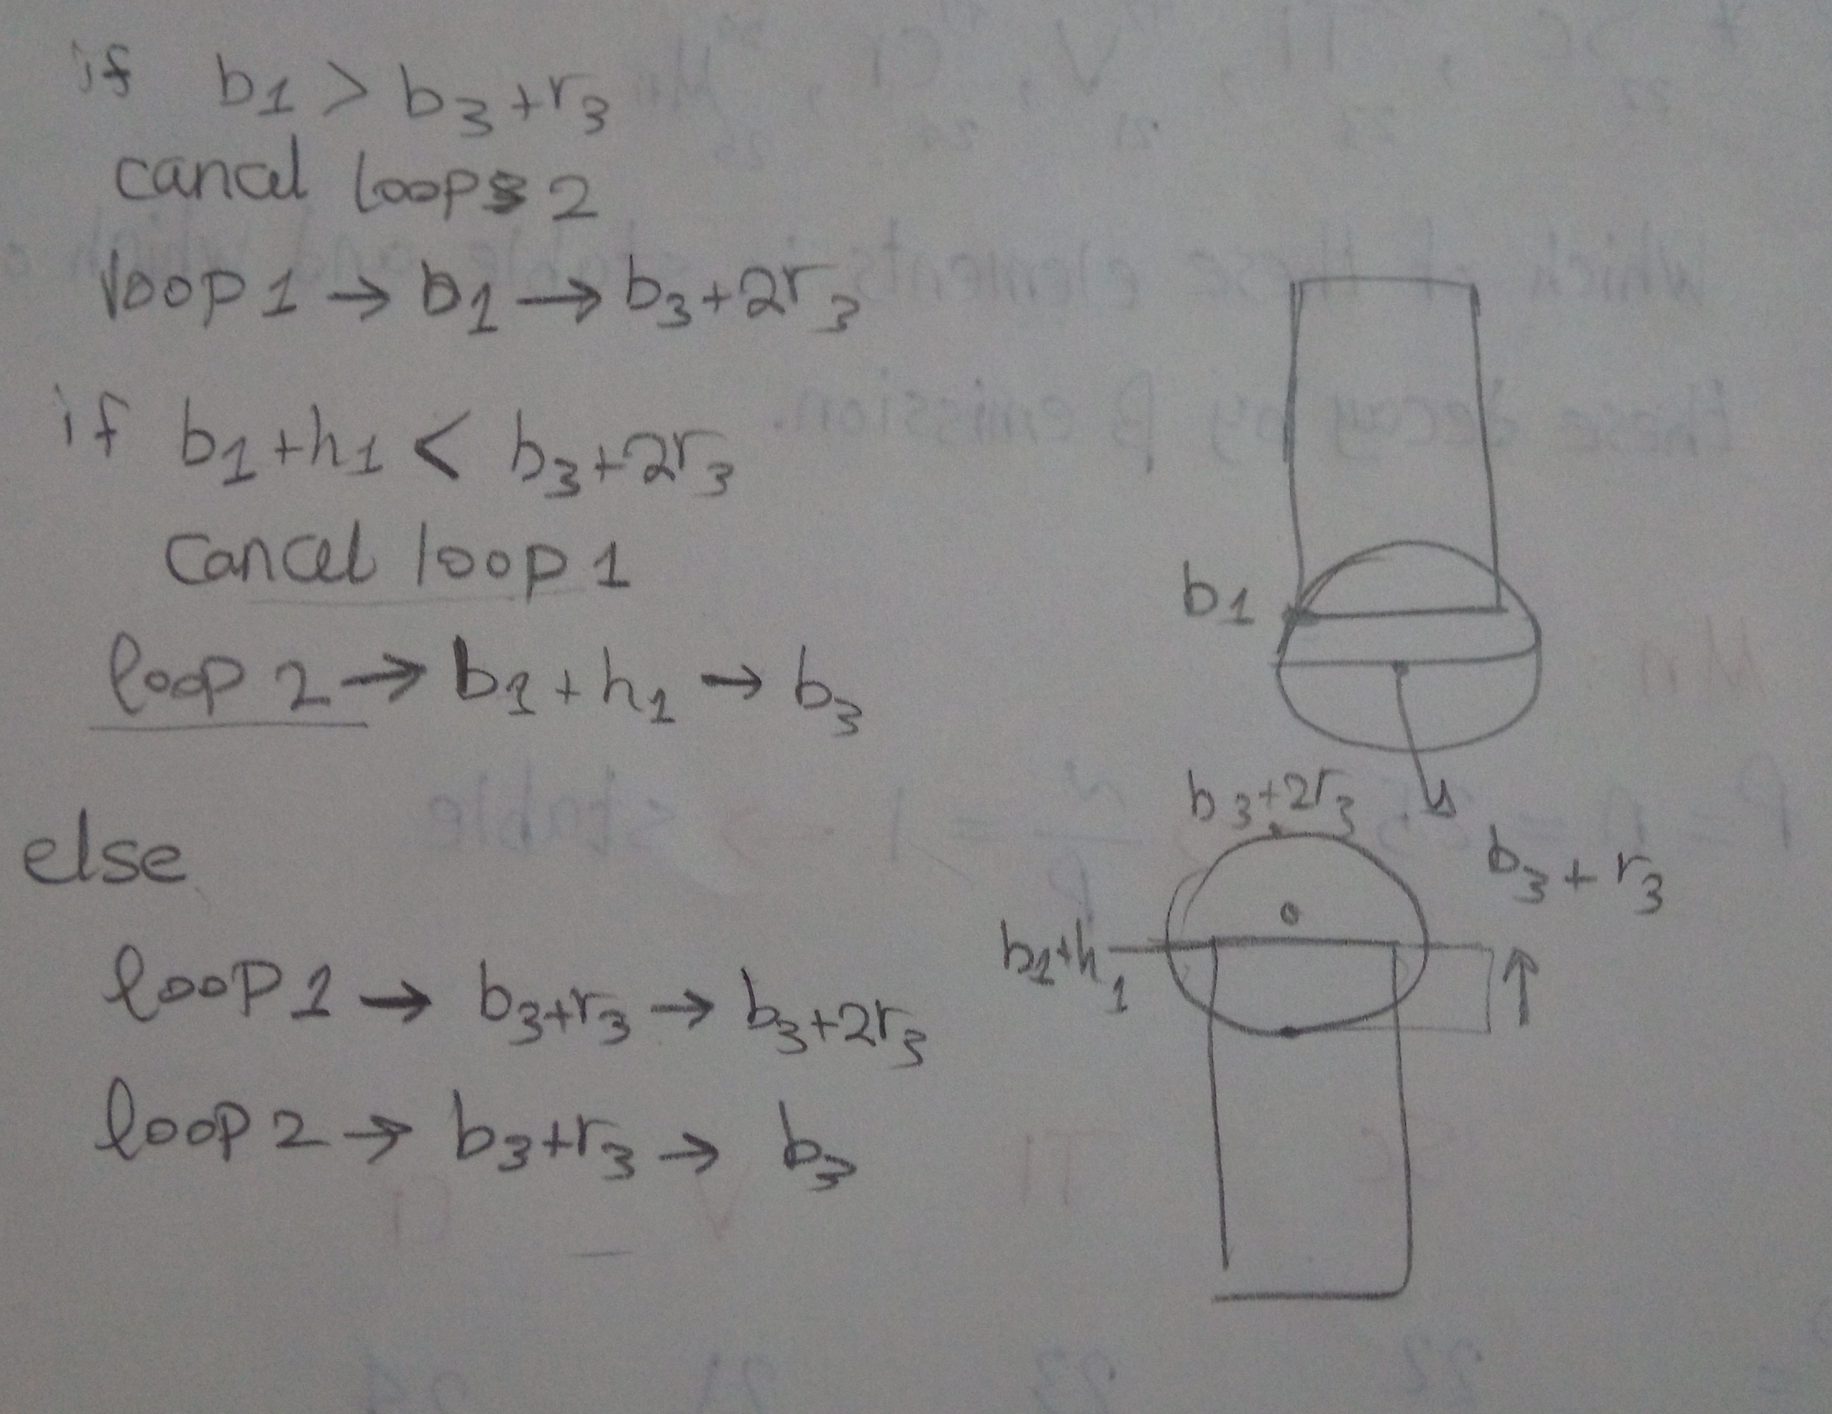 if b1 > b3+r3
cancel loops 2
loop 1 → b1 → b3+2r3
if b1+h1 < b3+2r3
cancel loop 1
loop 2 → b1+h1 → b3
else
loop 1 → b3+r3 → b3+2r3
loop 2 → b3+r3 → b3
b1
b3+r3
b3+2r3
b1+h1